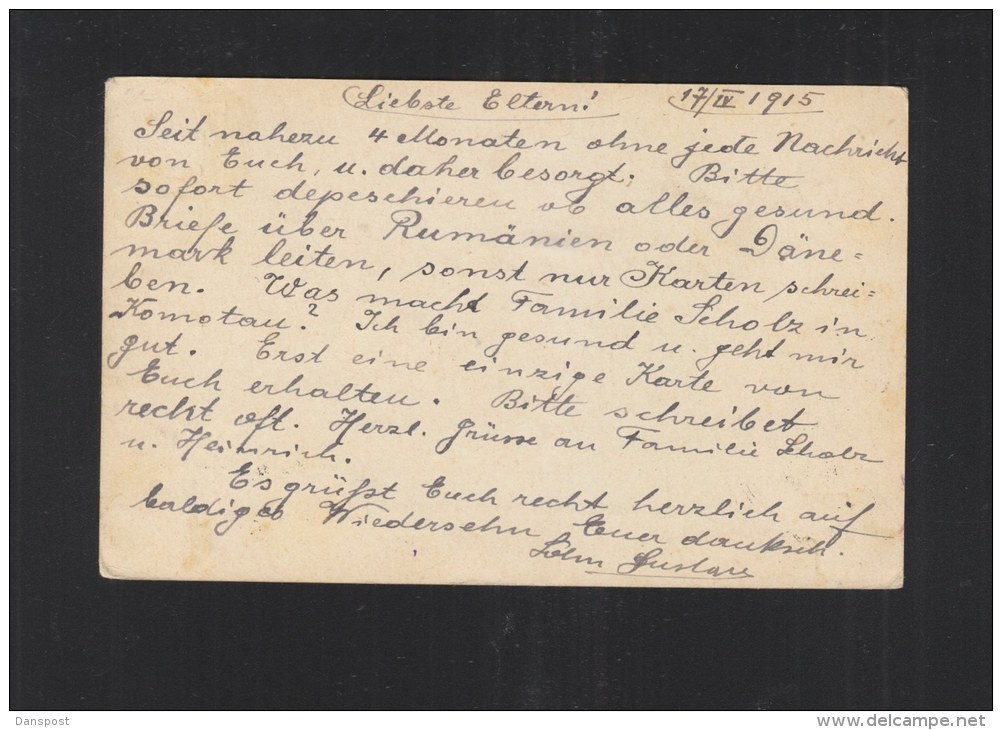 Liebste Eltern! 17/IV 1915
Seit nahezu 4 Monaten ohne jede Nachricht
von Euch, u. daher besorgt; Bitte
sofort depeschieren ob alles gesund.
Briefe über Rumänien oder Däne=
mark leiten, sonst nur Karten schrei=
ben. Was macht Familie Scholz in
Komotau? Ich bin gesund u. geht mir
gut. Erst eine einzige Karte von
Euch erhalten. Bitte schreibet
recht oft. Herzl. Grüsse an Familie Scholz
u. Heinrich.
Es grüßt Euch recht herzlich auf
baldiges Wiedersehn Euer danksch.
Sohn Gustav
Danspost
www.delcampe.net